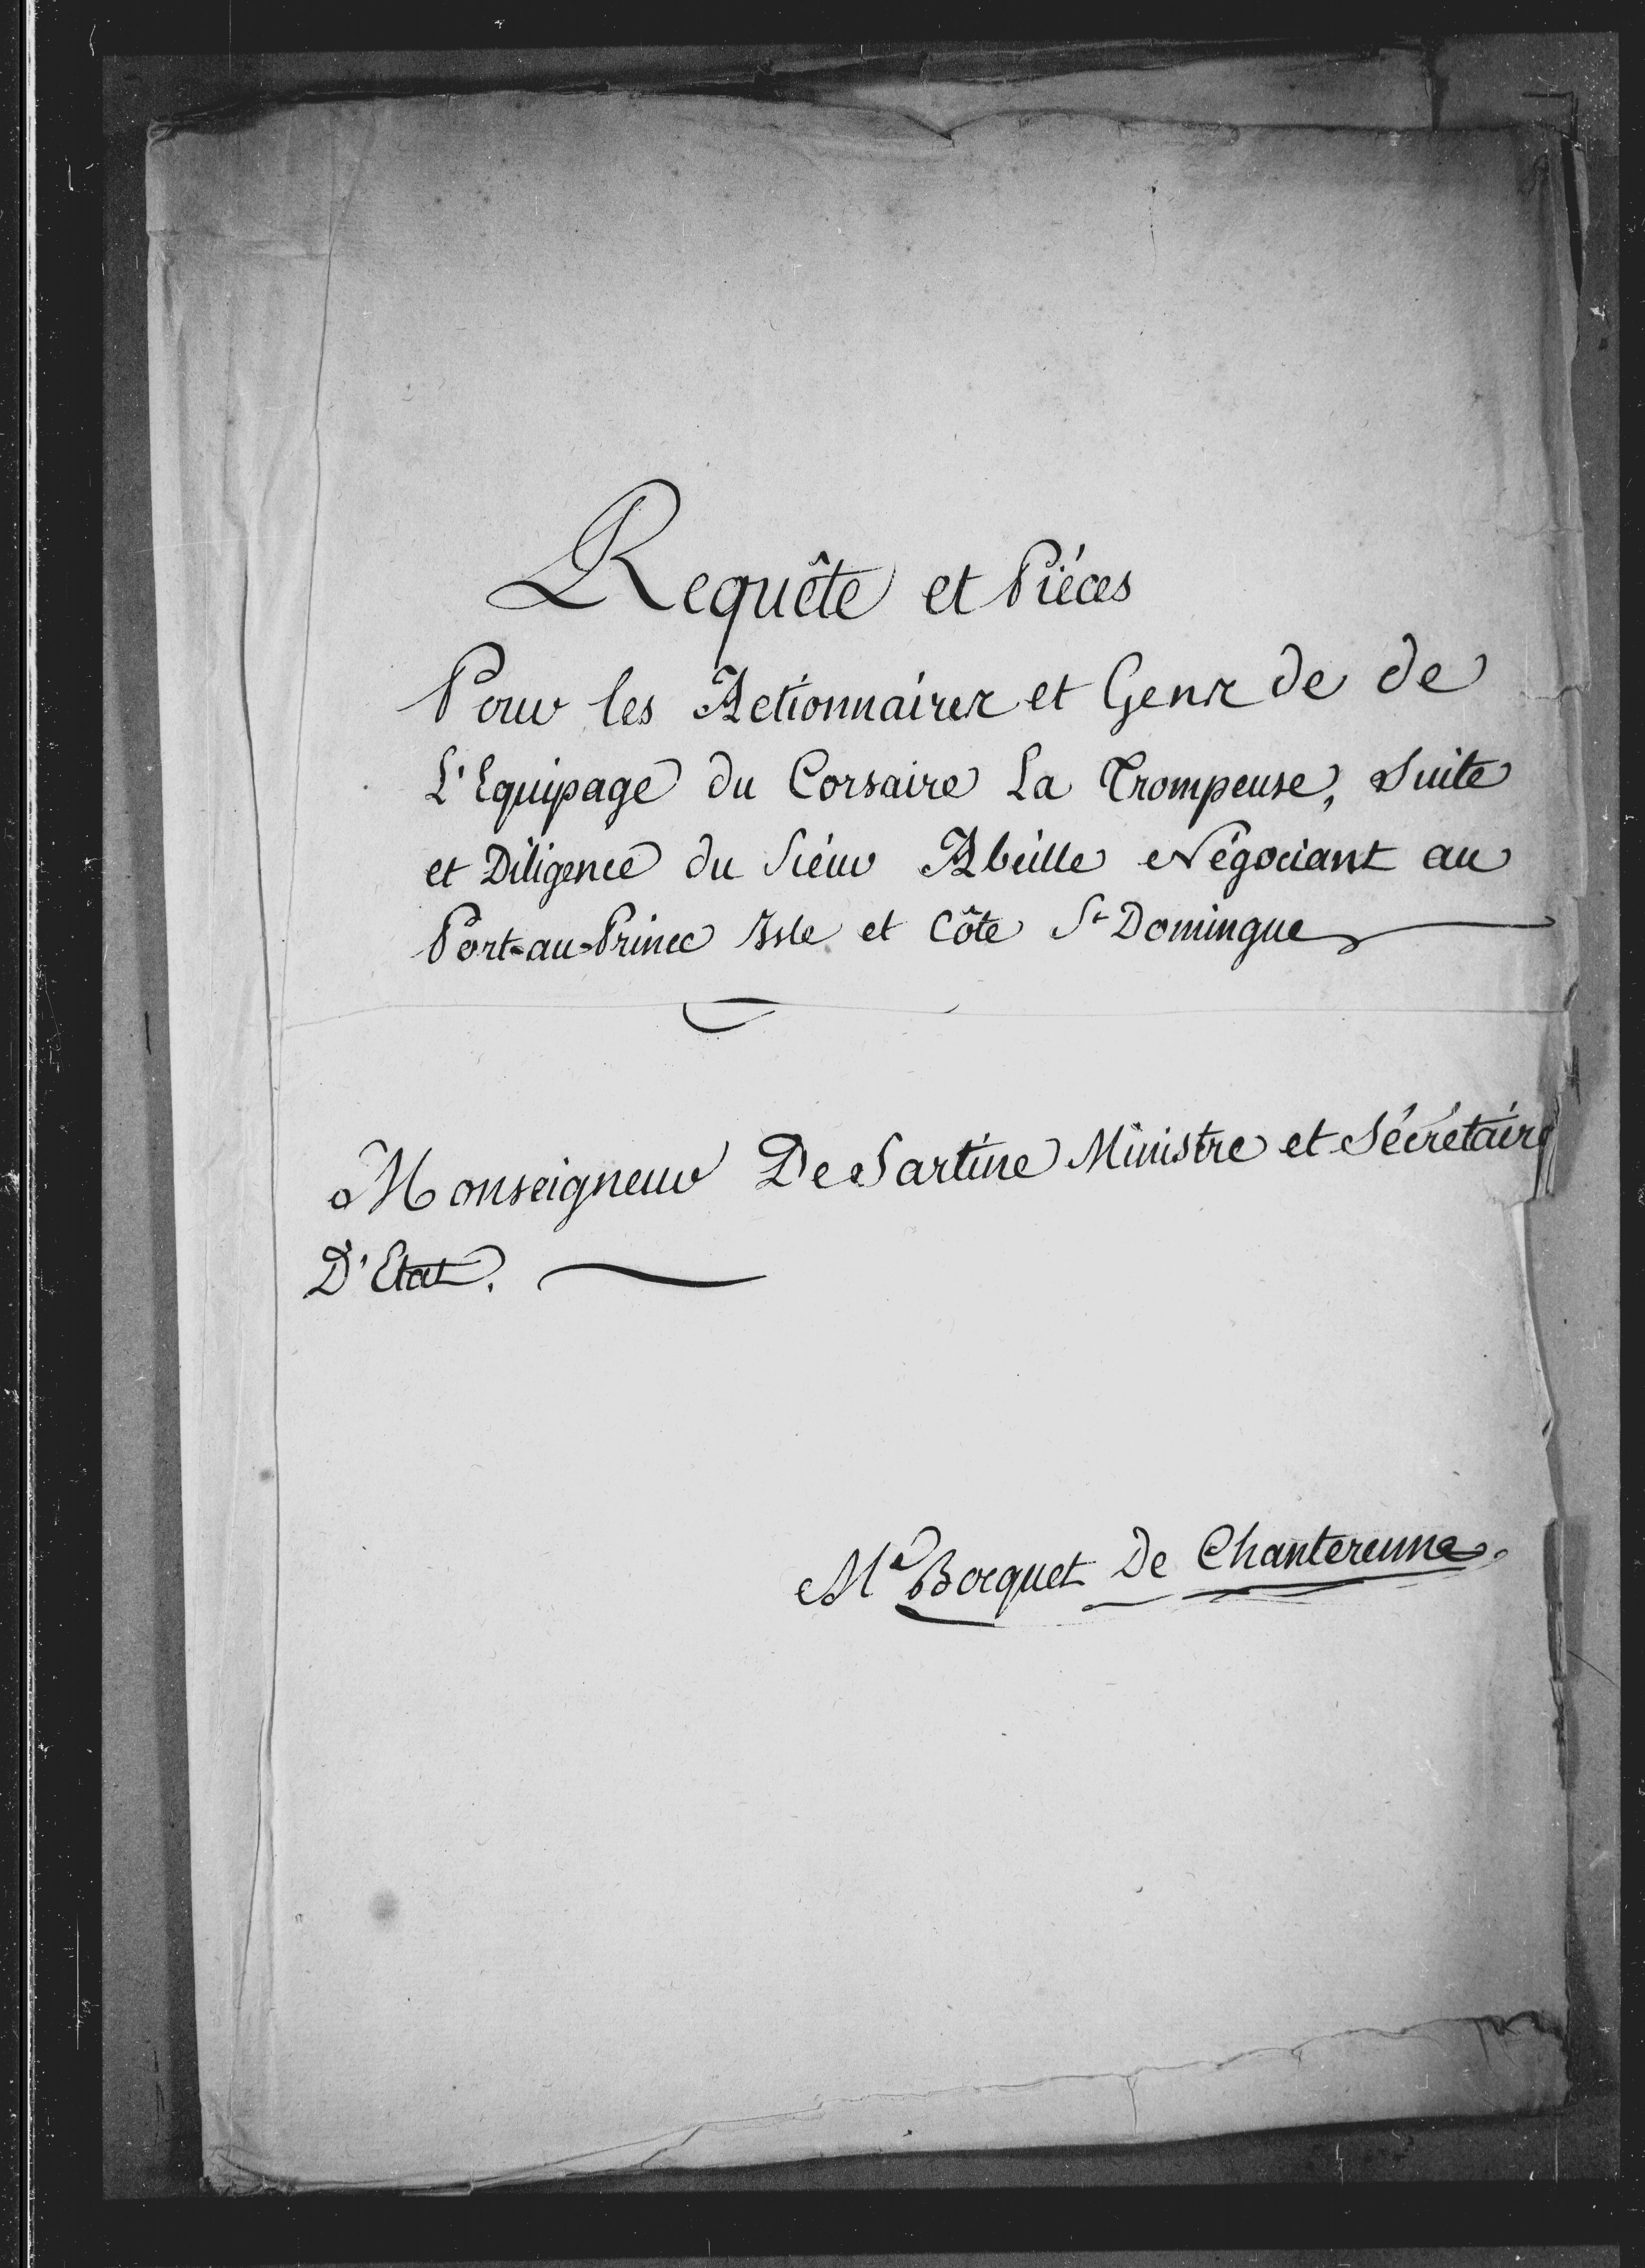 Requête et Piéces
Pour les Actionnaires et Gens de de
L'Equipage du Corsaire La Trompeuse, Suite
et Diligence du Siéur Abeille Négociant au
Port-au-Prince Isle et Côte St Domingue
Monseigneur De Sartine Ministre et Sécrétaire
D'Etat.
Me Bocquet De Chanterenne.